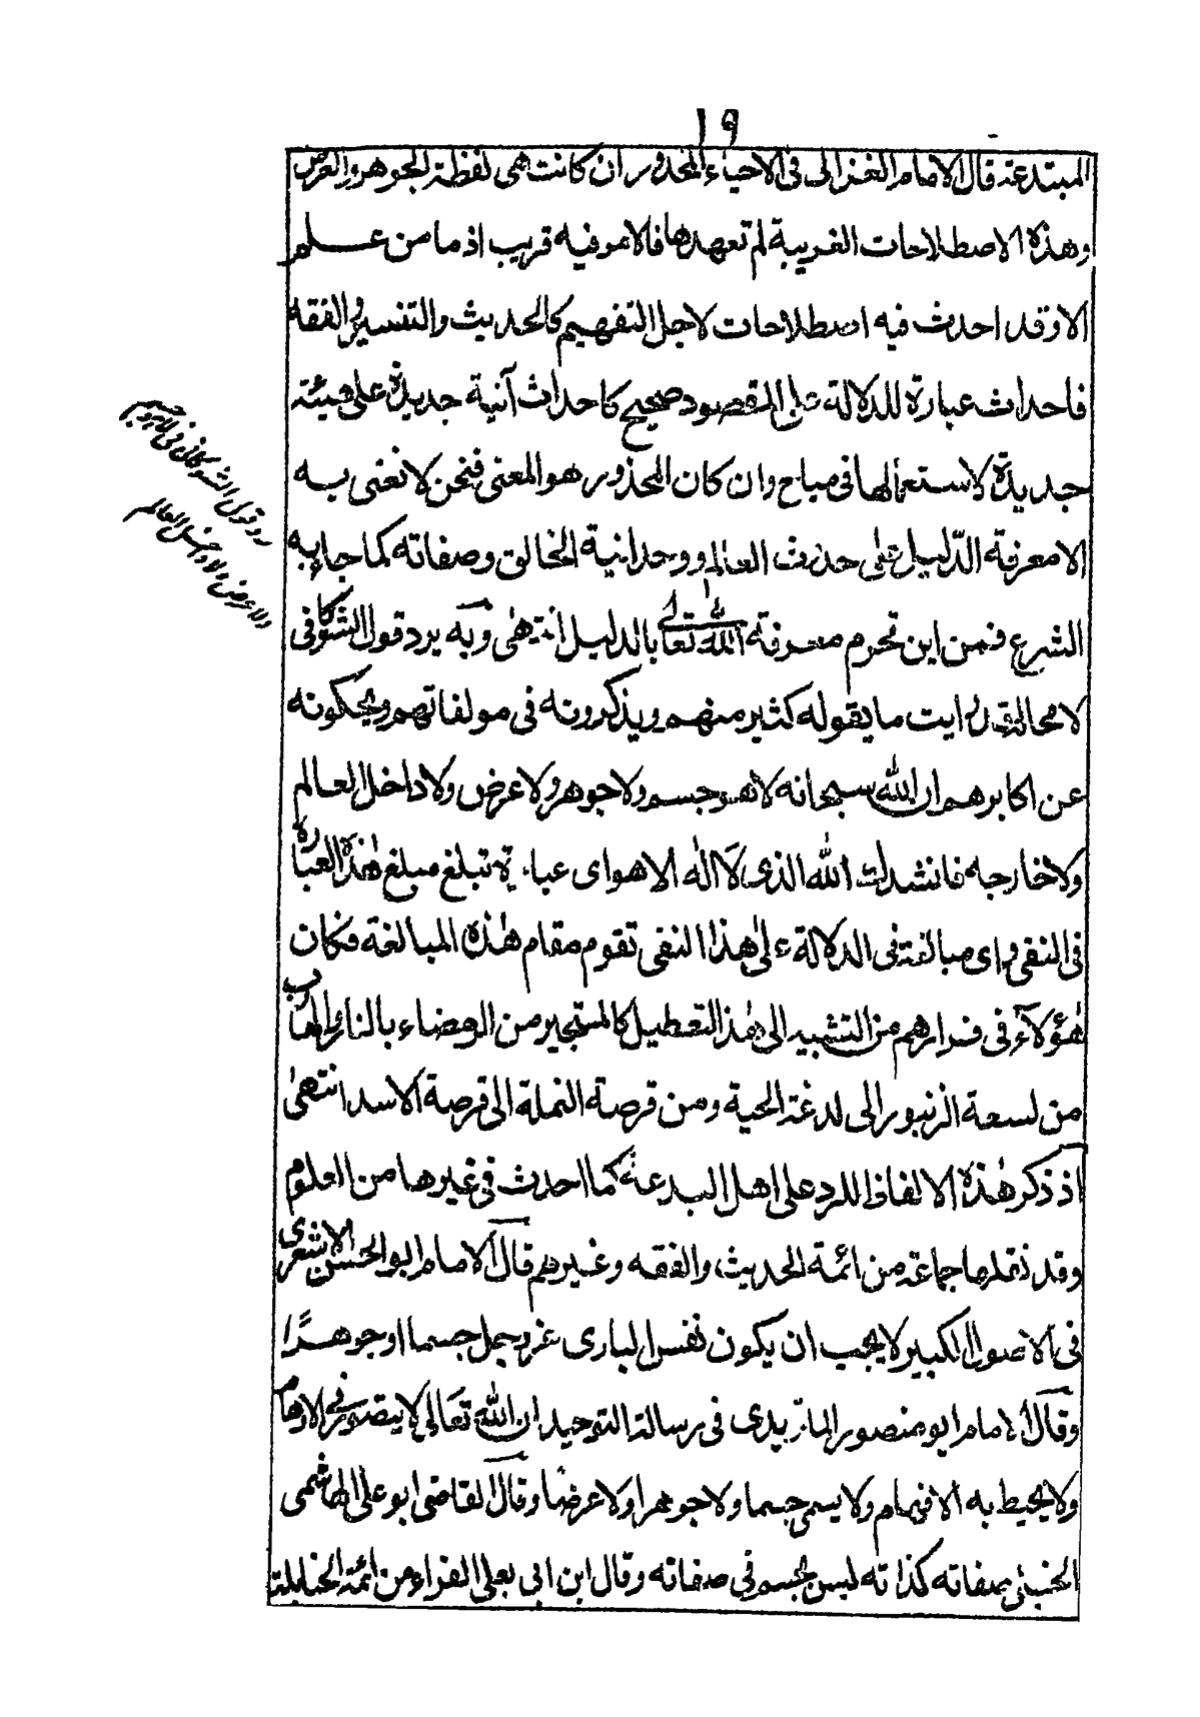 ١٩
المبتدعة قال الامام الغزالى فى الاحياء المحذور ان كانت هى لفظة الجوهر والعرض
وهذه الاصطلاحات الغريبة لم تعهدها فالامر فيه قريب اذ ما من علم
الا وقد احدث فيه اصطلاحات لاجل التفهيم كالحديث والتفسير والفقه
فاحداث عبارة للدلالة على المقصود صحيح كاحداث آنية جديدة على هيئة
جديدة لاستعمالها فى مباح وان كان المحذور هو المعنى فنحن لا نعنى به
الا معرفة الدليل على حدوث العالم ووحدانية الخالق وصفاته كما جاء به
الشرع فمن اين تحرم معرفة الله تعالى بالدليل انتهى وبه يرد قول الشوكانى
لا محالة رايت ما يقوله كثير منهم ويذكرونه فى مولفاتهم ويحكونه
عن اكابرهم ان الله سبحانه لا هو جسم ولا جوهر ولا عرض ولا داخل العالم
ولا خارجه فانشدك الله الذى لا اله الا هو اى عبارة تبلغ مبلغ هذه العبارة
فى النفى واى مبالغة فى الدلالة على هذا النفى تقوم مقام هذه المبالغة فكان
هؤلاء فى فرارهم من التشبيه الى هذا التعطيل كالمستجير من الرمضاء بالنار والهارب
من لسعة الزنبور الى لدغة الحية ومن قرصة النملة الى قرصة الاسد انتهى
اذ ذكر هذه الالفاظ للرد على اهل البدعة كما احدث فى غيرها من العلوم
وقد نقلها جماعة من ائمة الحديث والفقه وغيرهم قال الامام ابو الحسن الاشعرى
فى الاصول الكبير لا يجب ان يكون نفس البارى عز وجل جسما او جوهرًا
وقال الامام ابو منصور الماتريدى فى رسالة التوحيد ان الله تعالى لا يتصور فى الاوهام
ولا يحيط به الافهام ولا يسمى جسما ولا جوهرا ولا عرضا وقال القاضى ابو على الهاشمى
الحنبلى صفاته كذاته ليس بجسم فى صفاته وقال ابن ابى يعلى الفراء من ائمة الحنابلة
رد قول الشوكانى فى
ولا عرض ولا داخل العالم